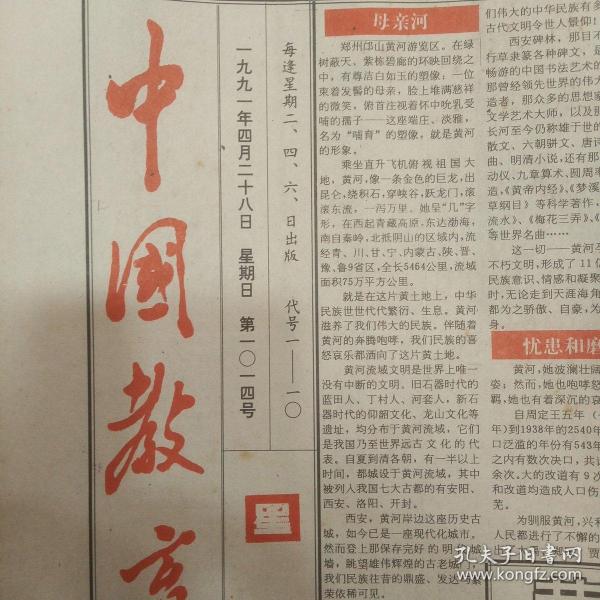 中國教
每逢星期二、四、六、日出版 代号一——一〇
一九九一年四月二十八日 星期日 第一〇一四号
星
母亲河
郑州邙山黄河游览区。在绿
树蔽天、紫栋碧廊的环映回绕之
中，有尊洁白如玉的塑像：一位
束着发髻的母亲，脸上堆满慈祥
的微笑，俯首注视着怀中吮乳受
哺的孺子——这座端庄、淡雅，
名为“哺育”的塑像，就是黄河
的形象。
乘坐直升飞机俯视祖国大
地，黄河，像一条金色的巨龙，出
昆仑，绕积石，穿峡谷，跃龙门，滚
滚东流，一泻万里。她呈“几”字
形，在西起青藏高原、东达渤海，
南自秦岭，北抵阴山的区域内，流
经青、川、甘、宁、内蒙古、陕、晋、
豫、鲁9省区，全长5464公里，流域
面积75万平方公里。
就是在这片黄土地上，中华
民族世世代代繁衍、生息。黄河
滋养了我们伟大的民族。伴随着
黄河的奔腾咆哮，我们民族的喜
怒哀乐都洒向了这片黄土地。
黄河流域文明是世界上唯一
没有中断的文明。旧石器时代的
蓝田人、丁村人、河套人，新石
器时代的仰韶文化、龙山文化等
遗址，均分布于黄河流域，它们
是我国乃至世界远古文化的代
表。自夏到清各朝，有一半以上
时间，都城设于黄河流域，其中
被列人我国七大古都的有安阳、
西安、洛阳、开封。
西安，黄河岸边这座历史古
城，如今已是一座现代化城市。
然而登上那保存完好的明代城
墙，眺望雄伟辉煌的古老城
我们民族往昔的鼎盛、发达与繁
荣依稀可见。
们伟大的中华民族有多
古代文明令世人景仰！
西安碑林，那目不
行草隶篆各种碑文，是
畅游的中国书法艺术的
那曾经领先世界的伟大
造者，那众多的思想家
文学艺术大师，以及那
长河至今仍称雄于世的
散文、六朝骈文、唐诗
曲、明清小说，还有那
动仪、九章算术、圆周率
造，《黄帝内经》、《梦溪
草纲目》等科学著作，
流水》、《梅花三弄》、《
等世界名曲……
这一切——黄河孕
不朽文明，形成了11亿
民族意识、情感和凝聚
时，无论走到天涯海角
都为之骄傲、自豪，为
身。
忧患和磨
黄河，她波澜壮阔
姿；然而，她也咆哮怒
羁，她也有着深沉的哀
自周定王五年（
年）到1938年的2540年
口泛滥的年份有543年
之内有数次决口，共计
余次。大的改道有9次
和改道均造成人口伤
芜。
为驯服黄河，兴利
人民都进行了不懈的
孔夫子旧书网
www.kongfz.com